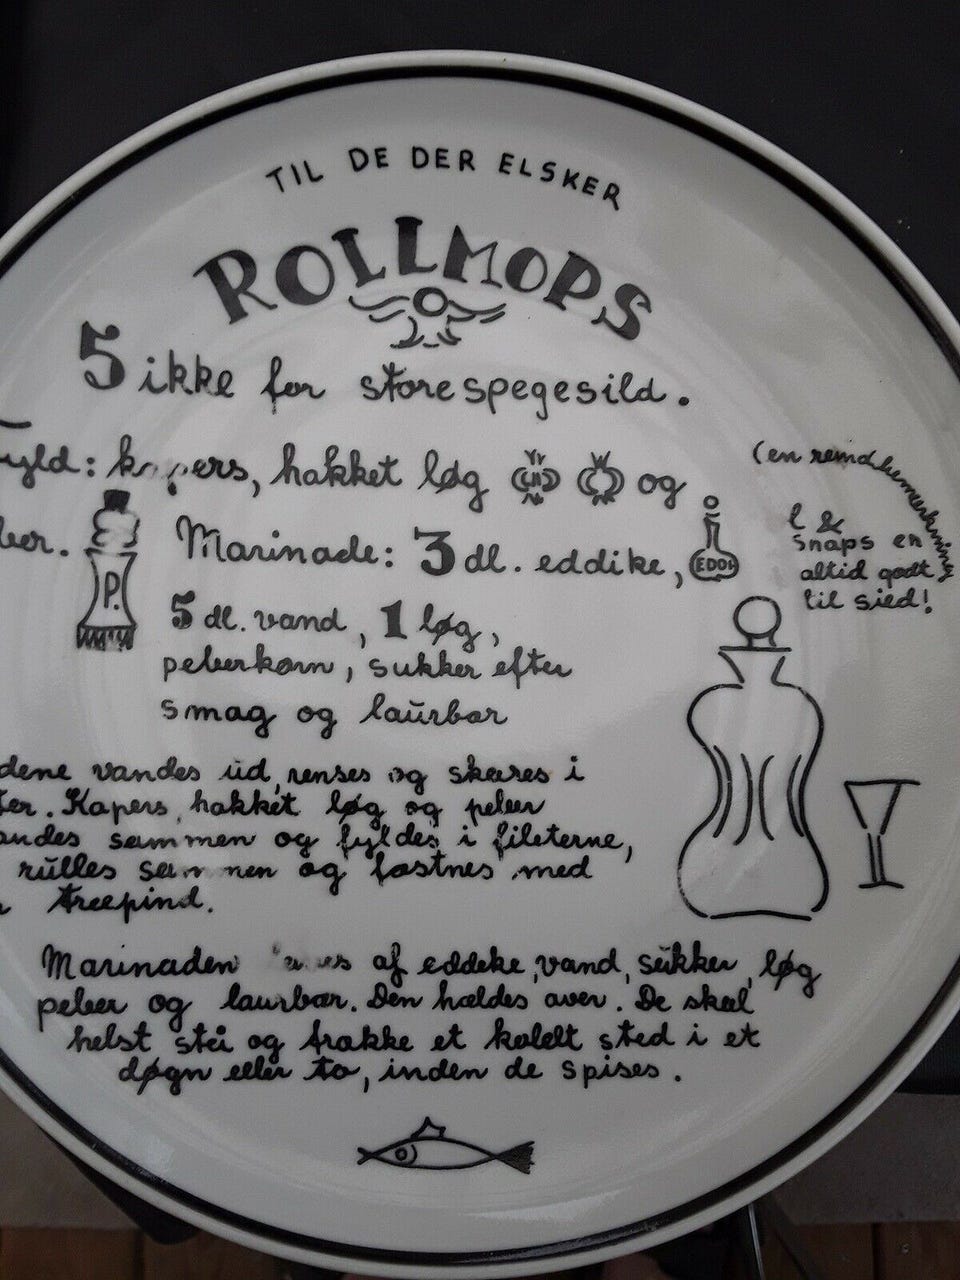 TIL DE DER ELSKER
ROLLMOPS
5 ikke for store spegesild.
Fyld: kapers, hakket løg og
ber.
P.
Marinade: 3 dl. eddike,
EDDI
5 dl. vand, 1 løg,
peberkorn, sukker efter
smag og laurbær
(en
øl &
snaps er
altid godt
til sild!
dene vandes ud, renses og skæres i
ter. Kapers, hakket løg og peber
andes sammen og fyldes i fileterne,
rulles sammen og fæstnes med
træpind.
Marinaden af eddike, vand, sukker, løg
peber og laurbær. Den hældes over. De skal
helst stå og trække et koldt sted i et
døgn eller to, inden de spises.